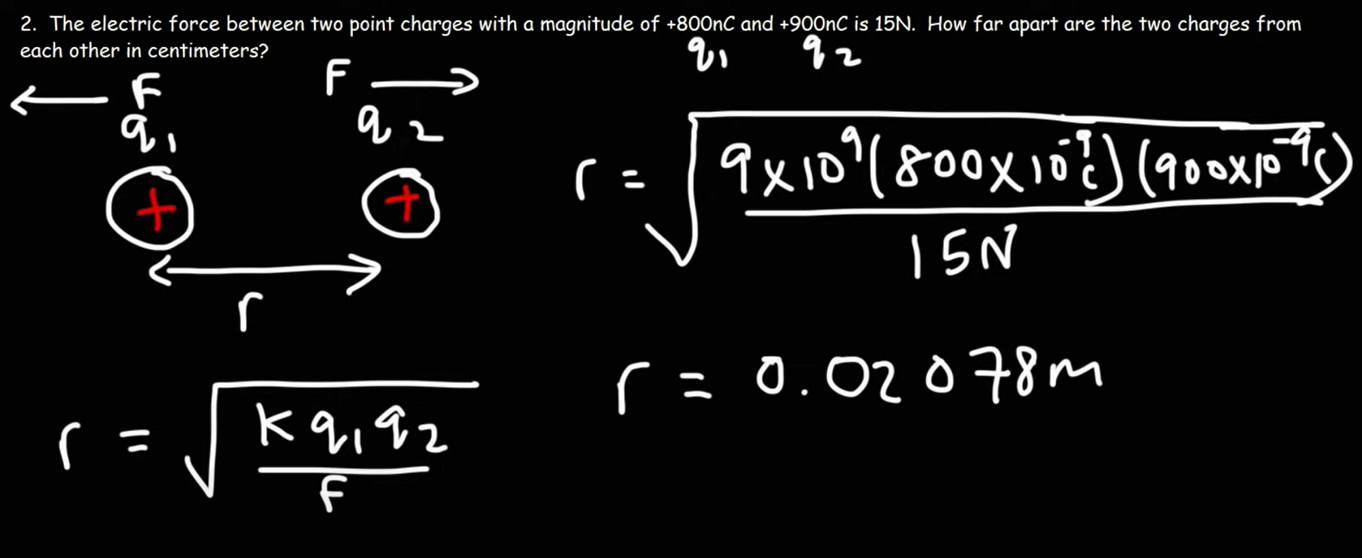 2. The electric force between two point charges with a magnitude of +800nC and +900nC is 15N. How far apart are the two charges from
each other in centimeters?
q₁ q₂
F F
q₁ q₂
+ +
r
r = √(9x10⁹(800x10⁻⁹C)(900x10⁻⁹C) / 15N)
r = 0.02078m
r = √(Kq₁q₂ / F)